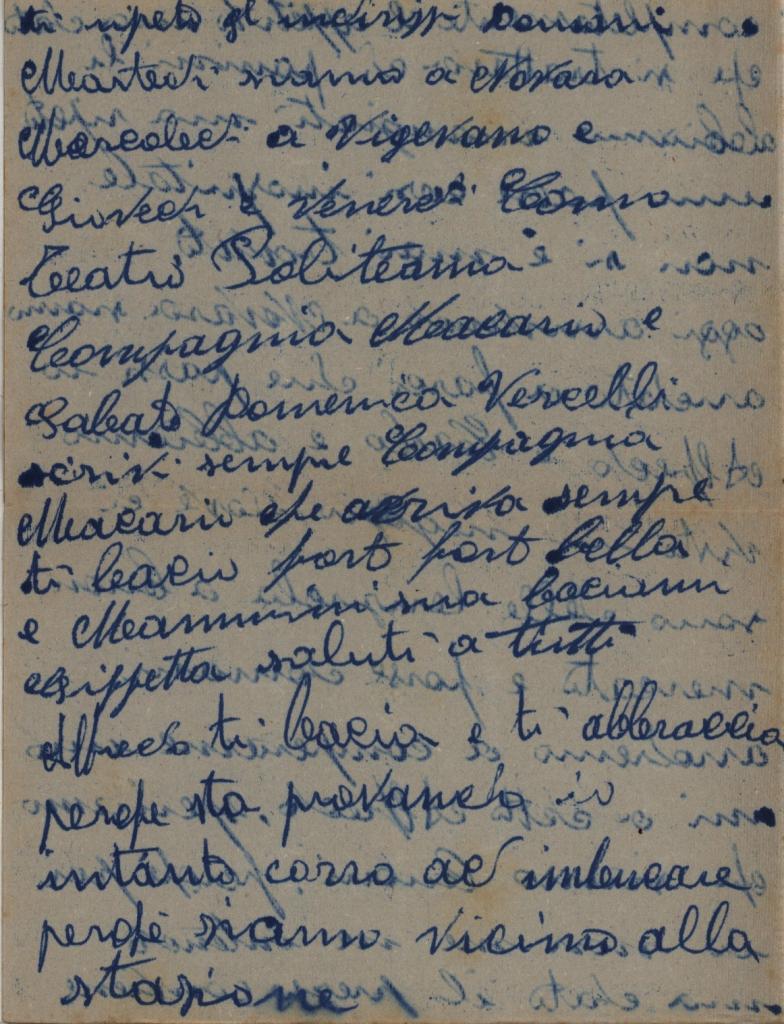 ti ripeto gl indirizzi Domani
Martedi siamo a Novara
Mercoledi a Vigevano e
Giovedi e Venerdi Como
Teatro Politeama
Compagnia Macario e
Sabato Domenica Vercelli
scrivi sempre Compagnia
Macario che arriva sempre
ti bacio fort fort bella
e Mammina mia baciami
saluti a tutti
Alfredo ti bacia e ti abbraccia
perche sta provando io
intanto corro ad imbucare
perche siamo vicino alla
stazione